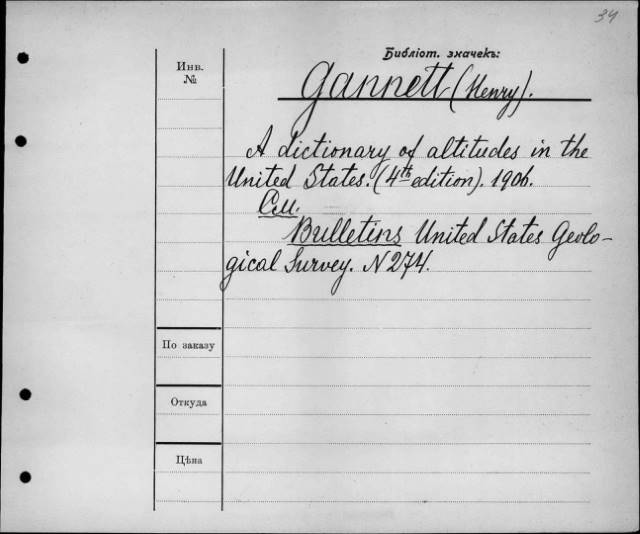 34
Библіот. значекъ:
Инв.
№
Gannett (Henry).
A dictionary of altitudes in the
United States. (4th edition). 1906.
См.
Bulletins United States Geolo-
gical Survey. N 274.
По заказу
Откуда
Цѣна